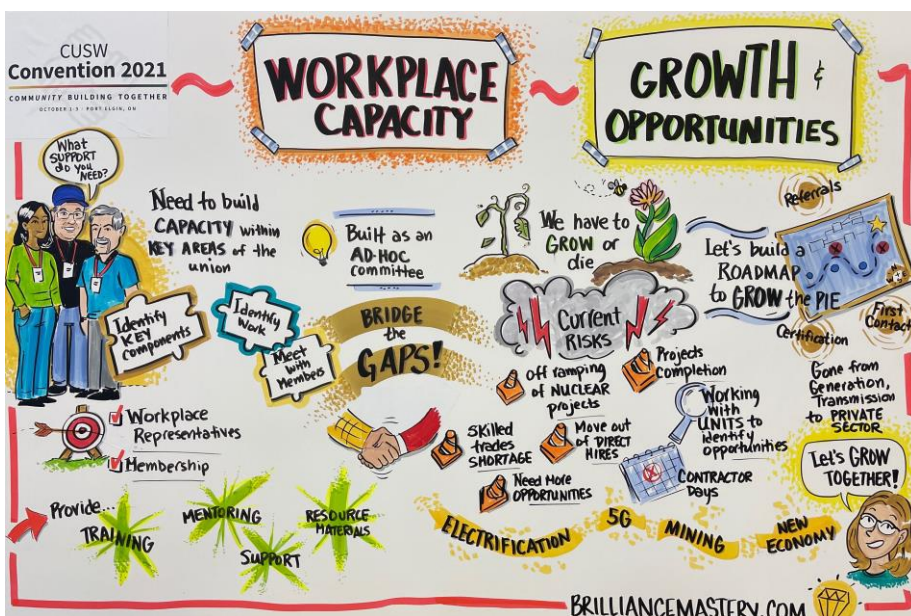 CUSW
Convention 2021
COMMUNITY BUILDING TOGETHER
OCTOBER 1-3 · PORT ELGIN, ON
WORKPLACE
CAPACITY
GROWTH &
OPPORTUNITIES
What
SUPPORT
do you
NEED?
Need to build
CAPACITY within
KEY AREAS of the
union
Identify
KEY
Components
Identify
Work
Meet
with
Members
Built as an
AD-HOC
committee
BRIDGE
the
GAPS!
Workplace
Representatives
Membership
Provide...
TRAINING
MENTORING
SUPPORT
RESOURCE
MATERIALS
We have to
GROW or
die
Current
RISKS
Off ramping
of NUCLEAR
projects
Projects
Completion
Skilled
trades
SHORTAGE
Move out
of DIRECT
HIRES
Need More
OPPORTUNITIES
Working
with
UNITS to
identify
opportunities
CONTRACTOR
Days
Let's build a
ROADMAP
to GROW the PIE
Referrals
Certification
First
Contact
Gone from
Generation,
Transmission
to PRIVATE
SECTOR
Let's GROW
TOGETHER!
ELECTRIFICATION
5G
MINING
NEW
ECONOMY
BRILLIANCEMASTERY.COM